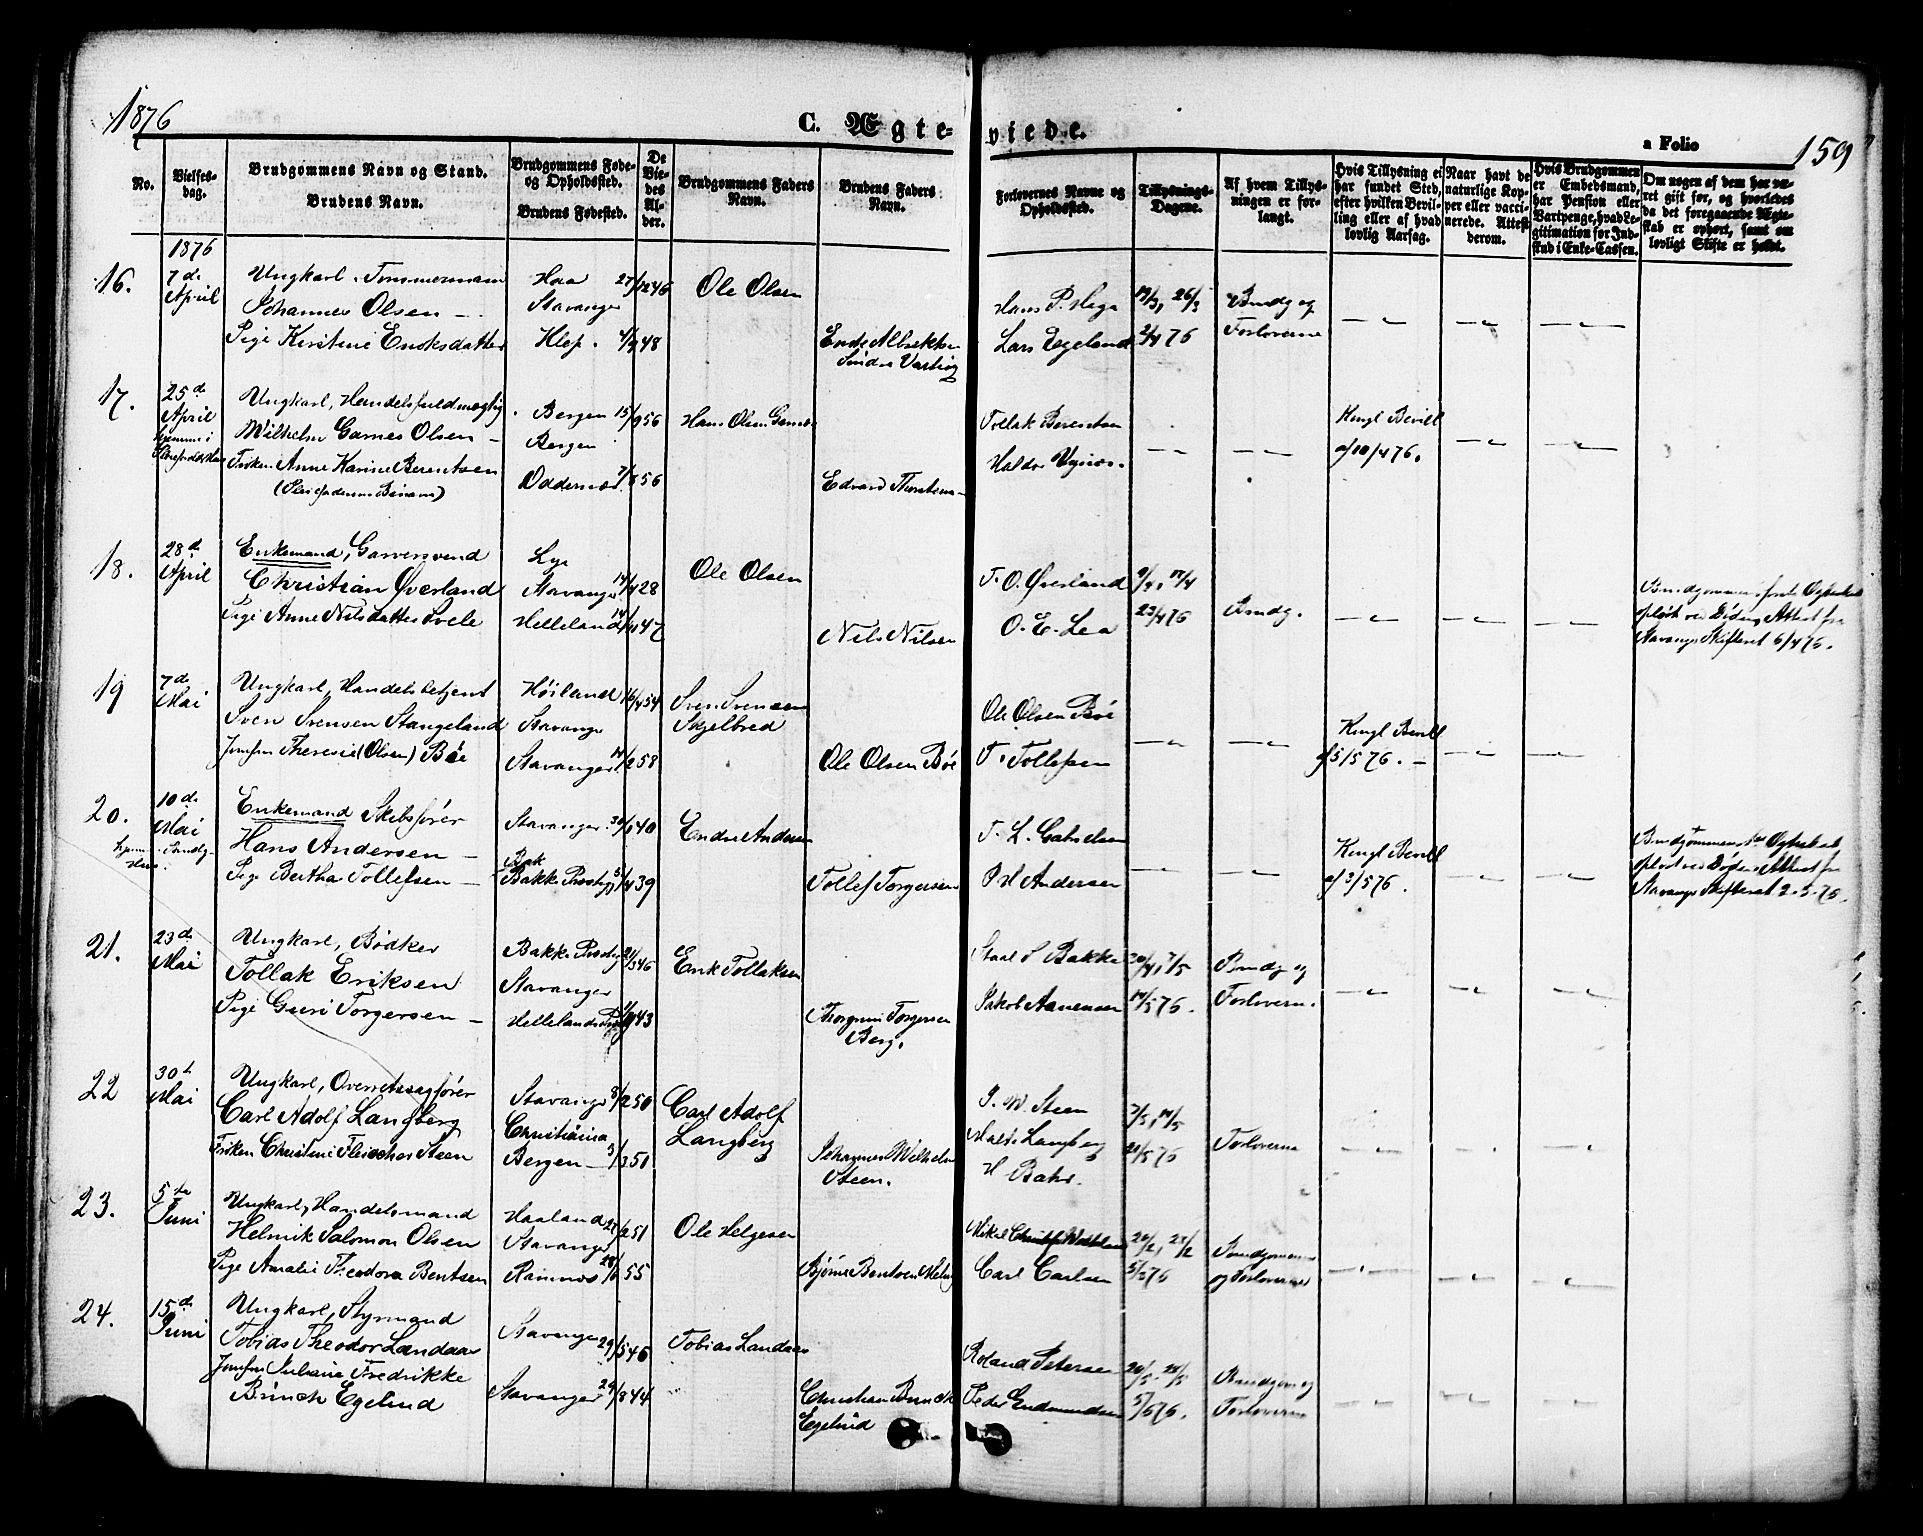 1876
C. Ægte-
viede.
a Folio
159
No.
Vielses-
dag.
Brudgommens Navn og Stand.
Brudens Navn.
Brudgommens Føde-
og Opholdssted.
Brudens Fødested.
De
Vie-
des
Al-
der.
Brudgommens Faders
Navn.
Brudens Faders
Navn.
Forlovernes Navne og
Opholdssted.
Tillysnings-
Dagene.
Af hvem Tillys-
ningen er for-
langt.
Hvis Tillysning ei
har fundet Sted,
efter hvilken Bevil-
ling eller af hvad
lovlig Aarsag.
Naar havt de
naturlige Kop-
per eller vacci-
nerede. Attest
derom.
Hvis Brudgommen
er Embedsmand,
har Pension eller
Vartpenge, hvad Le-
gitimation for Ind-
skud i Enke-Cassen.
Om nogen af dem har væ-
ret gift før, og hvorledes
da det foregaaende Ægte-
skab er ophørt, samt om
lovligt Skifte er holdt.
1876
16.
7de
April
Ungkarl, Tømmermann
Johannes Olsen
Pige Kirstine Enoksdatter
Haa
Stavanger
Klep.
27/12 46
4/2 48
Ole Olsen
Hans P. Hega
Lars Egeland
19/3, 26/3
2/4 76
Brudg og
Forloverne
17.
25de
April
Ungkarl, Handelsfuldmægtig
Wilhelm Garnes Olsen
Frøken Anne Karine Berentsen
Bergen
Bergen
Oddernes
15/9 56
7/8 56
Hans Olsen Garnes
Tollak Berentsen
Kongl Bevill
af 10/4 76.
18.
28de
April
Enkemand, Garversvend
Christian Øverland
Pige Anne Nilsdatter Svele
Stavanger
Helleland
14/4 28
14/11 47
Ole Olsen
Nils Nilsen
T. O. Øverland
O. E. Lea
9/4, 17/4
23/4 76
Brudg.
Brudgommens første Ægteskab
opløst ved Døden, Attest fra
Stavanger Skifteret 6/4 76.
19
7de
Mai
Ungkarl, Handelsbetjent
Sven Svensen Stangeland
Jomfru Theresie (Olsen) Bøe
Høiland
Stavanger
Stavanger
16/4 54
14/2 58
Sven Svensen
Skjelbred
Ole Olsen Bøe
Ole Olsen Bøe
T. Tollefsen
Kongl Bevill
af 5/5 76.
20.
10de
Mai
Enkemand Skibsfører
Hans Andersen
Pige Bertha Tollefsen
Stavanger
Bak
Bakke Præstegj
30/6 40
5/4 39
Endre Andersen
Tollef Torgersen
T. L. Gabrielsen
P. H Andersen
Kongl Bevill
af 3/5 76.
Brudgommens 1ste Ægteskab
opløst ved Døden, Attest fra
Stavanger Skifteret 2-5-76.
21.
23de
Mai
Ungkarl, Bødker
Tollak Eriksen
Pige Guri Torgersen
Bakke Præstegj
Stavanger
Hellelands
21/3 46
Erik Tollaksen
Thorgrim Torgersen
Berg.
S Bakke
Jakob Aanensen
30/4, 7/5
14/5 76.
Brudg og
Forlovern.
22
30te
Mai
Ungkarl, Overretssagfører
Carl Adolf Langberg
Frøken Christine Fleischer Steen
Stavanger
Christiania
Bergen
8/2 50
3/3 51
Carl Adolf
Langberg
Johannes Wilhelm
Steen.
J. W. Steen
Langberg
H Bahr.
7/5, 14/5
21/5 76
Forloverne
23.
5te
Juni
Ungkarl, Handelsmand
Helmik Salomon Olsen
Pige Amalie Theodora Bentsen
Haaland
Stavanger
2 51
55
Ole Helgesen
Bjørne Bentsen
Carl Carlsen
20/2, 27/2
5/3 76
Brudgommen
og Forloverne
24.
15de
Juni
Ungkarl, Styrmand
Tobias Theodor Landaas
Jomfru Juliane Fredrikke
Brinch Egelund
Stavanger
Stavanger
29/5 46
24/8 44
Tobias Landaas
Christian Brinch
Egelund
Roland Petersen
Peder Endmundsen
20/5. 28/5
5/6 76.
Brudgom og
Forloverne